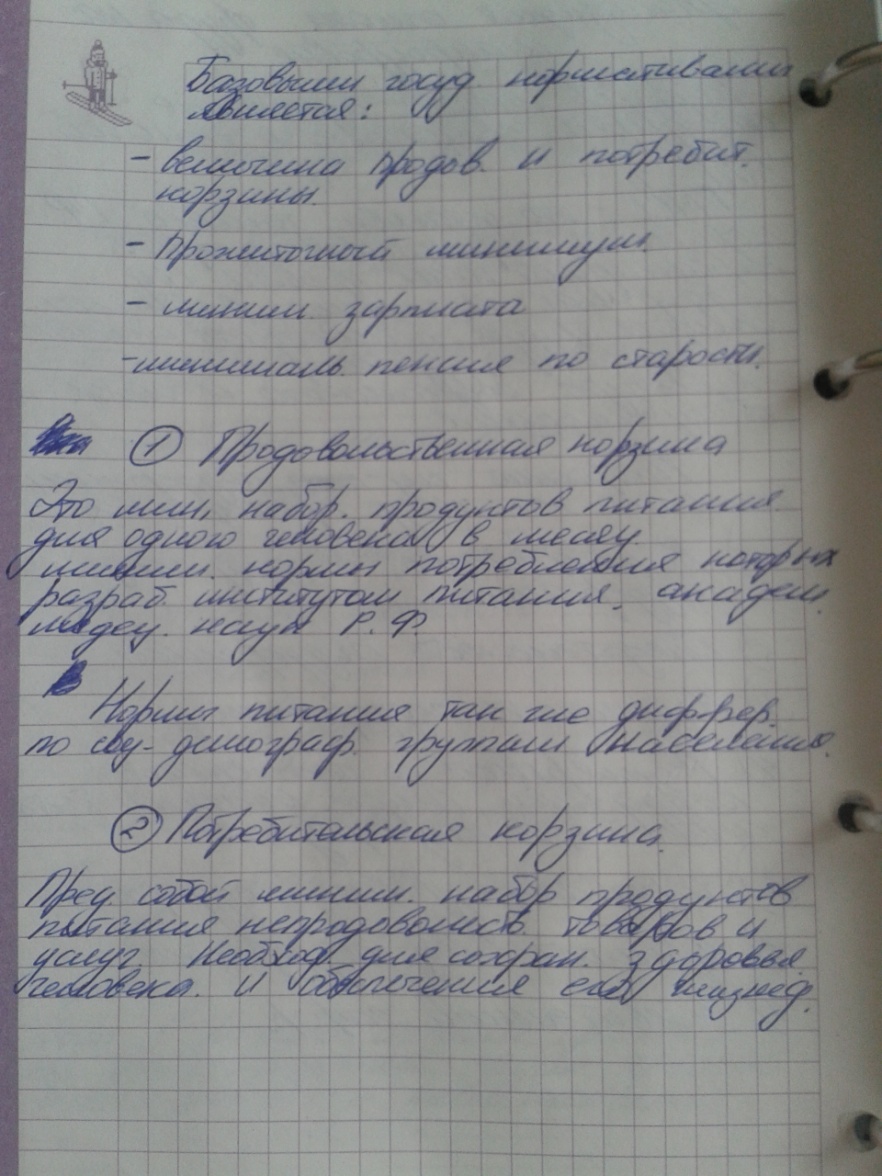 Базовыми госуд нормативами
является:
- величина продов. и потребит.
корзины.
- Прожиточный минимум.
- миним. зарплата
- минималь. пенсия по старости.
① Продовольственная корзина
Это мин. набор. продуктов питания.
для одного человека в месяц
миним. нормы потребления которых
разраб. институтом питания. академ.
медец. наук Р.Ф.
Нормы питания так же диффер.
по соц-демограф. группам населения.
② Потребительская корзина.
Пред собой миним. набор продуктов
питания непродовольств. товаров и
услуг. Необход. для сохран. здоровья
человека. и обеспечения его жизнед.